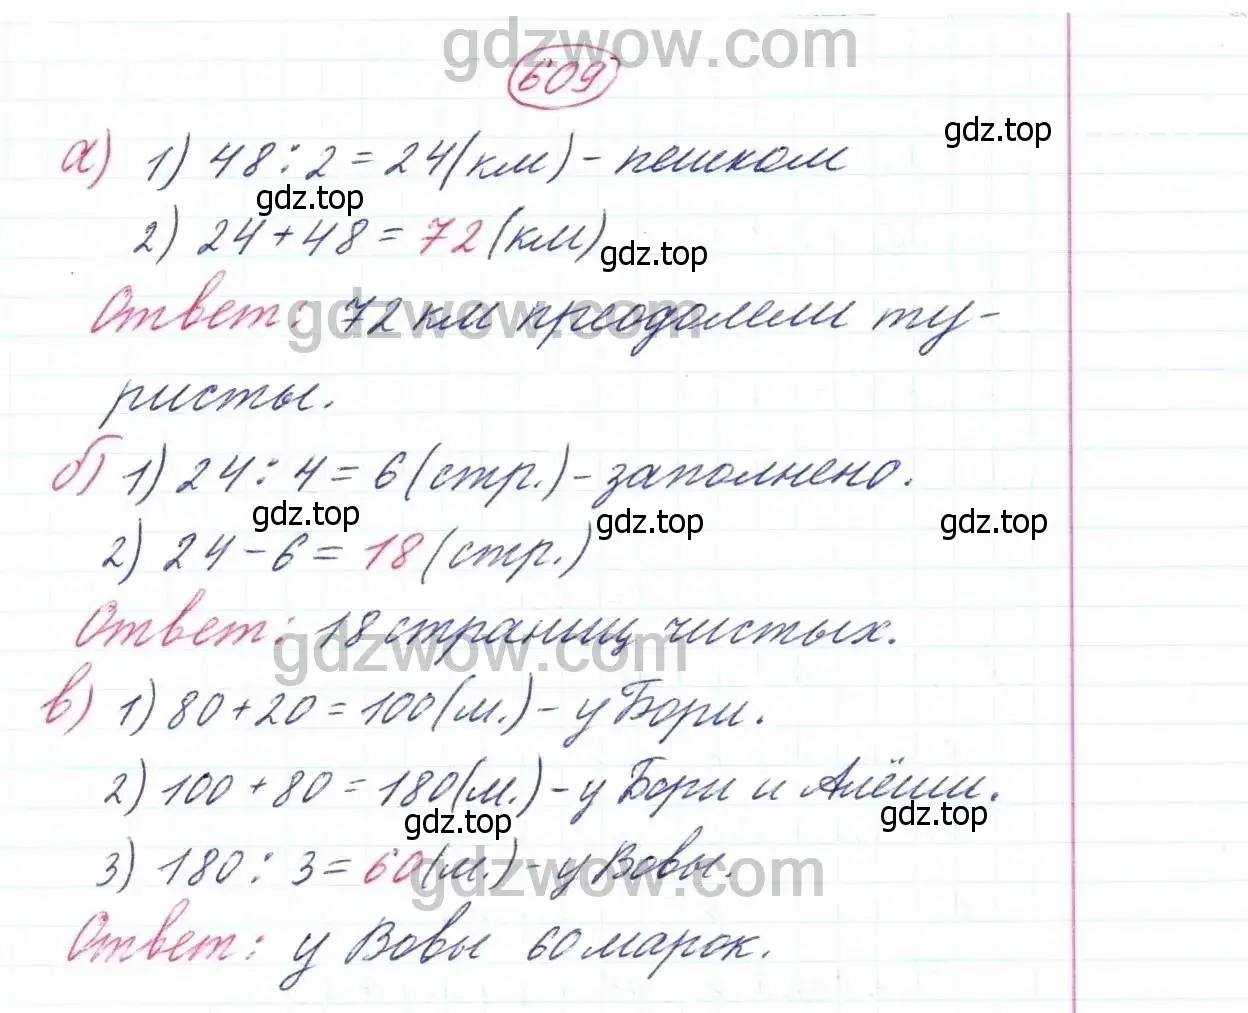 gdzwow.com
609
gdz.top
а) 1) 48 : 2 = 24 (км) - пешком
gdz.top
2) 24 + 48 = 72 (км)
gdz.top
gdzwow.com
Ответ: 72 км преодолели ту-
ристы.
б) 1) 24 : 4 = 6 (стр.) - заполнено.
gdz.top gdz.top gdz.top
2) 24 - 6 = 18 (стр.)
Ответ: 18 страниц чистых.
gdzwow.com
в) 1) 80 + 20 = 100 (м.) - у Бори.
2) 100 + 80 = 180 (м.) - у Бори и Алёши.
gdz.top gdz.top
3) 180 : 3 = 60 (м.) - у Вовы.
gdzwow.com
Ответ: у Вовы 60 марок.